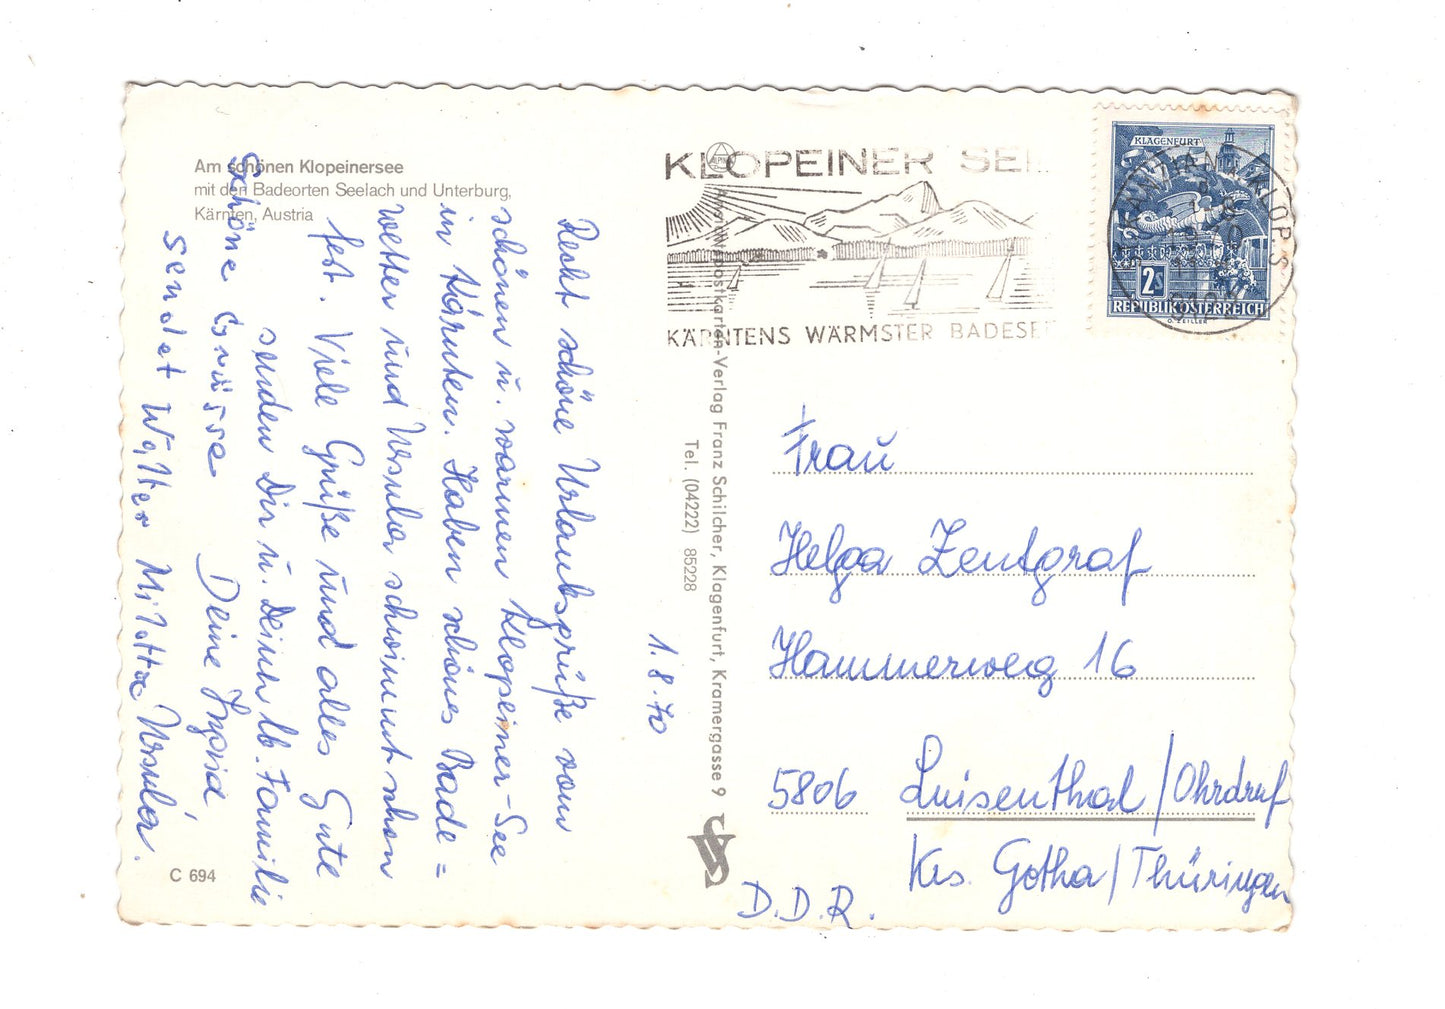 Am schönen Klopeinersee
mit den Badeorten Seelach und Unterburg,
Kärnten, Austria
KLOPEINER SEE
KÄRNTENS WÄRMSTER BADESE
KLAGENFURT
2S
REPUBLIK ÖSTERREICH
O. ZEILLER
1.8.70
Recht schöne Urlaubsgrüße vom
schönen u. warmen Klopeiner-See
in Kärnten. Haben schönes Bade=
wetter und Ursula schwimmt schon
fest. Viele Grüße und alles Gute
senden Dir u. Deiner lb. Familie
Deine Ingrid
Schöne Grüsse
sendet Walter Mutti Ursula.
Ansichtspostkarten-Verlag Franz Schilcher, Klagenfurt, Kramergasse 9
Tel. (04222) 85228
C 694
Frau
Helga Zentgraf
Hammerweg 16
5806 Luisenthal/Ohrdruf
Krs. Gotha/Thüringen
D.D.R.